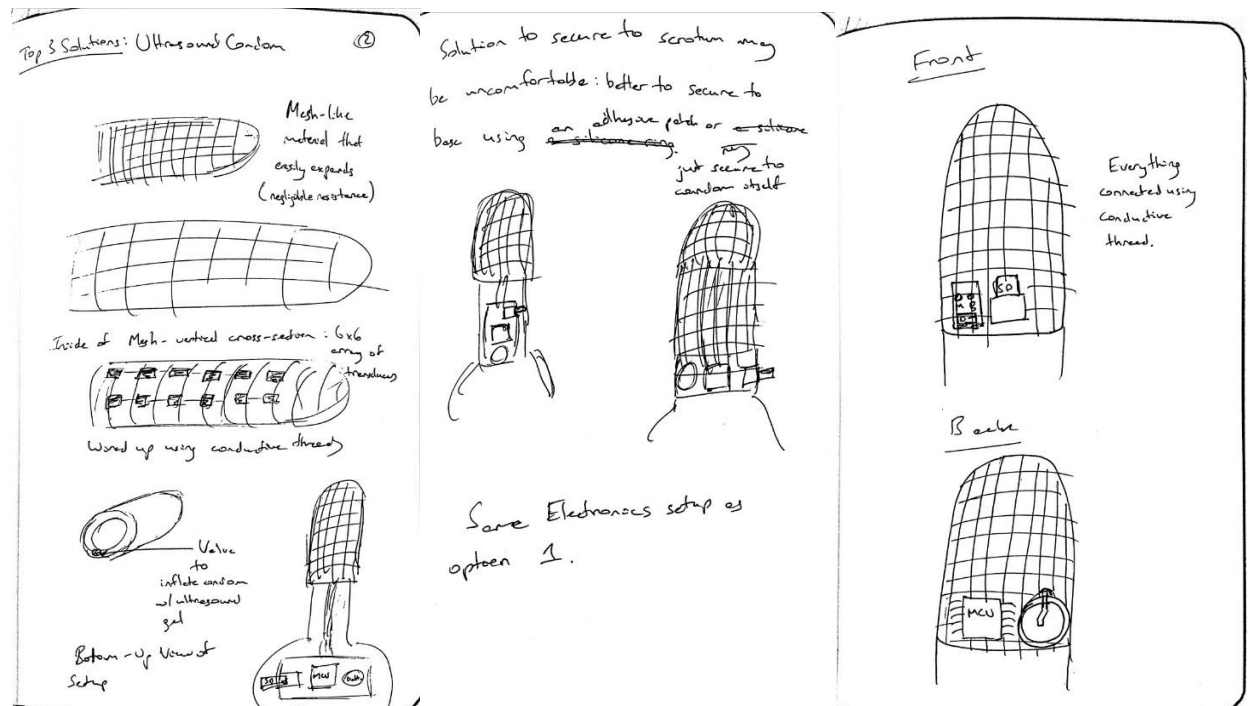 Top 3 Solutions: Ultrasound Condom
2
Mesh-like
material that
easily expands
(negligible resistance)
Inside of Mesh - vertical cross-section : 6x6
array of
transducers
Wired up using conductive thread
Valve
to
inflate condom
w/ ultrasound
gel
Bottom-Up View of
Setup
SD
MCU
Batt
Solution to secure to scrotum may
be uncomfortable: better to secure to
base using an adhesive patch or
a silicone ring.
a silicone
ring
just secure to
condom itself
Same Electronics setup as
option 1.
Front
Everything
connected using
conductive
thread.
SD
Back
MCU